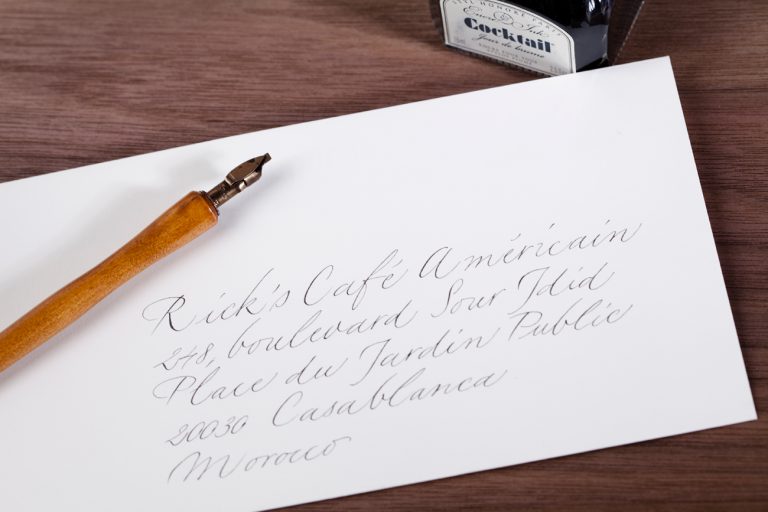 Cocktail
Rick's Café Américain
248, boulevard Sour Jdid
Place du Jardin Public
20030 Casablanca
Morocco